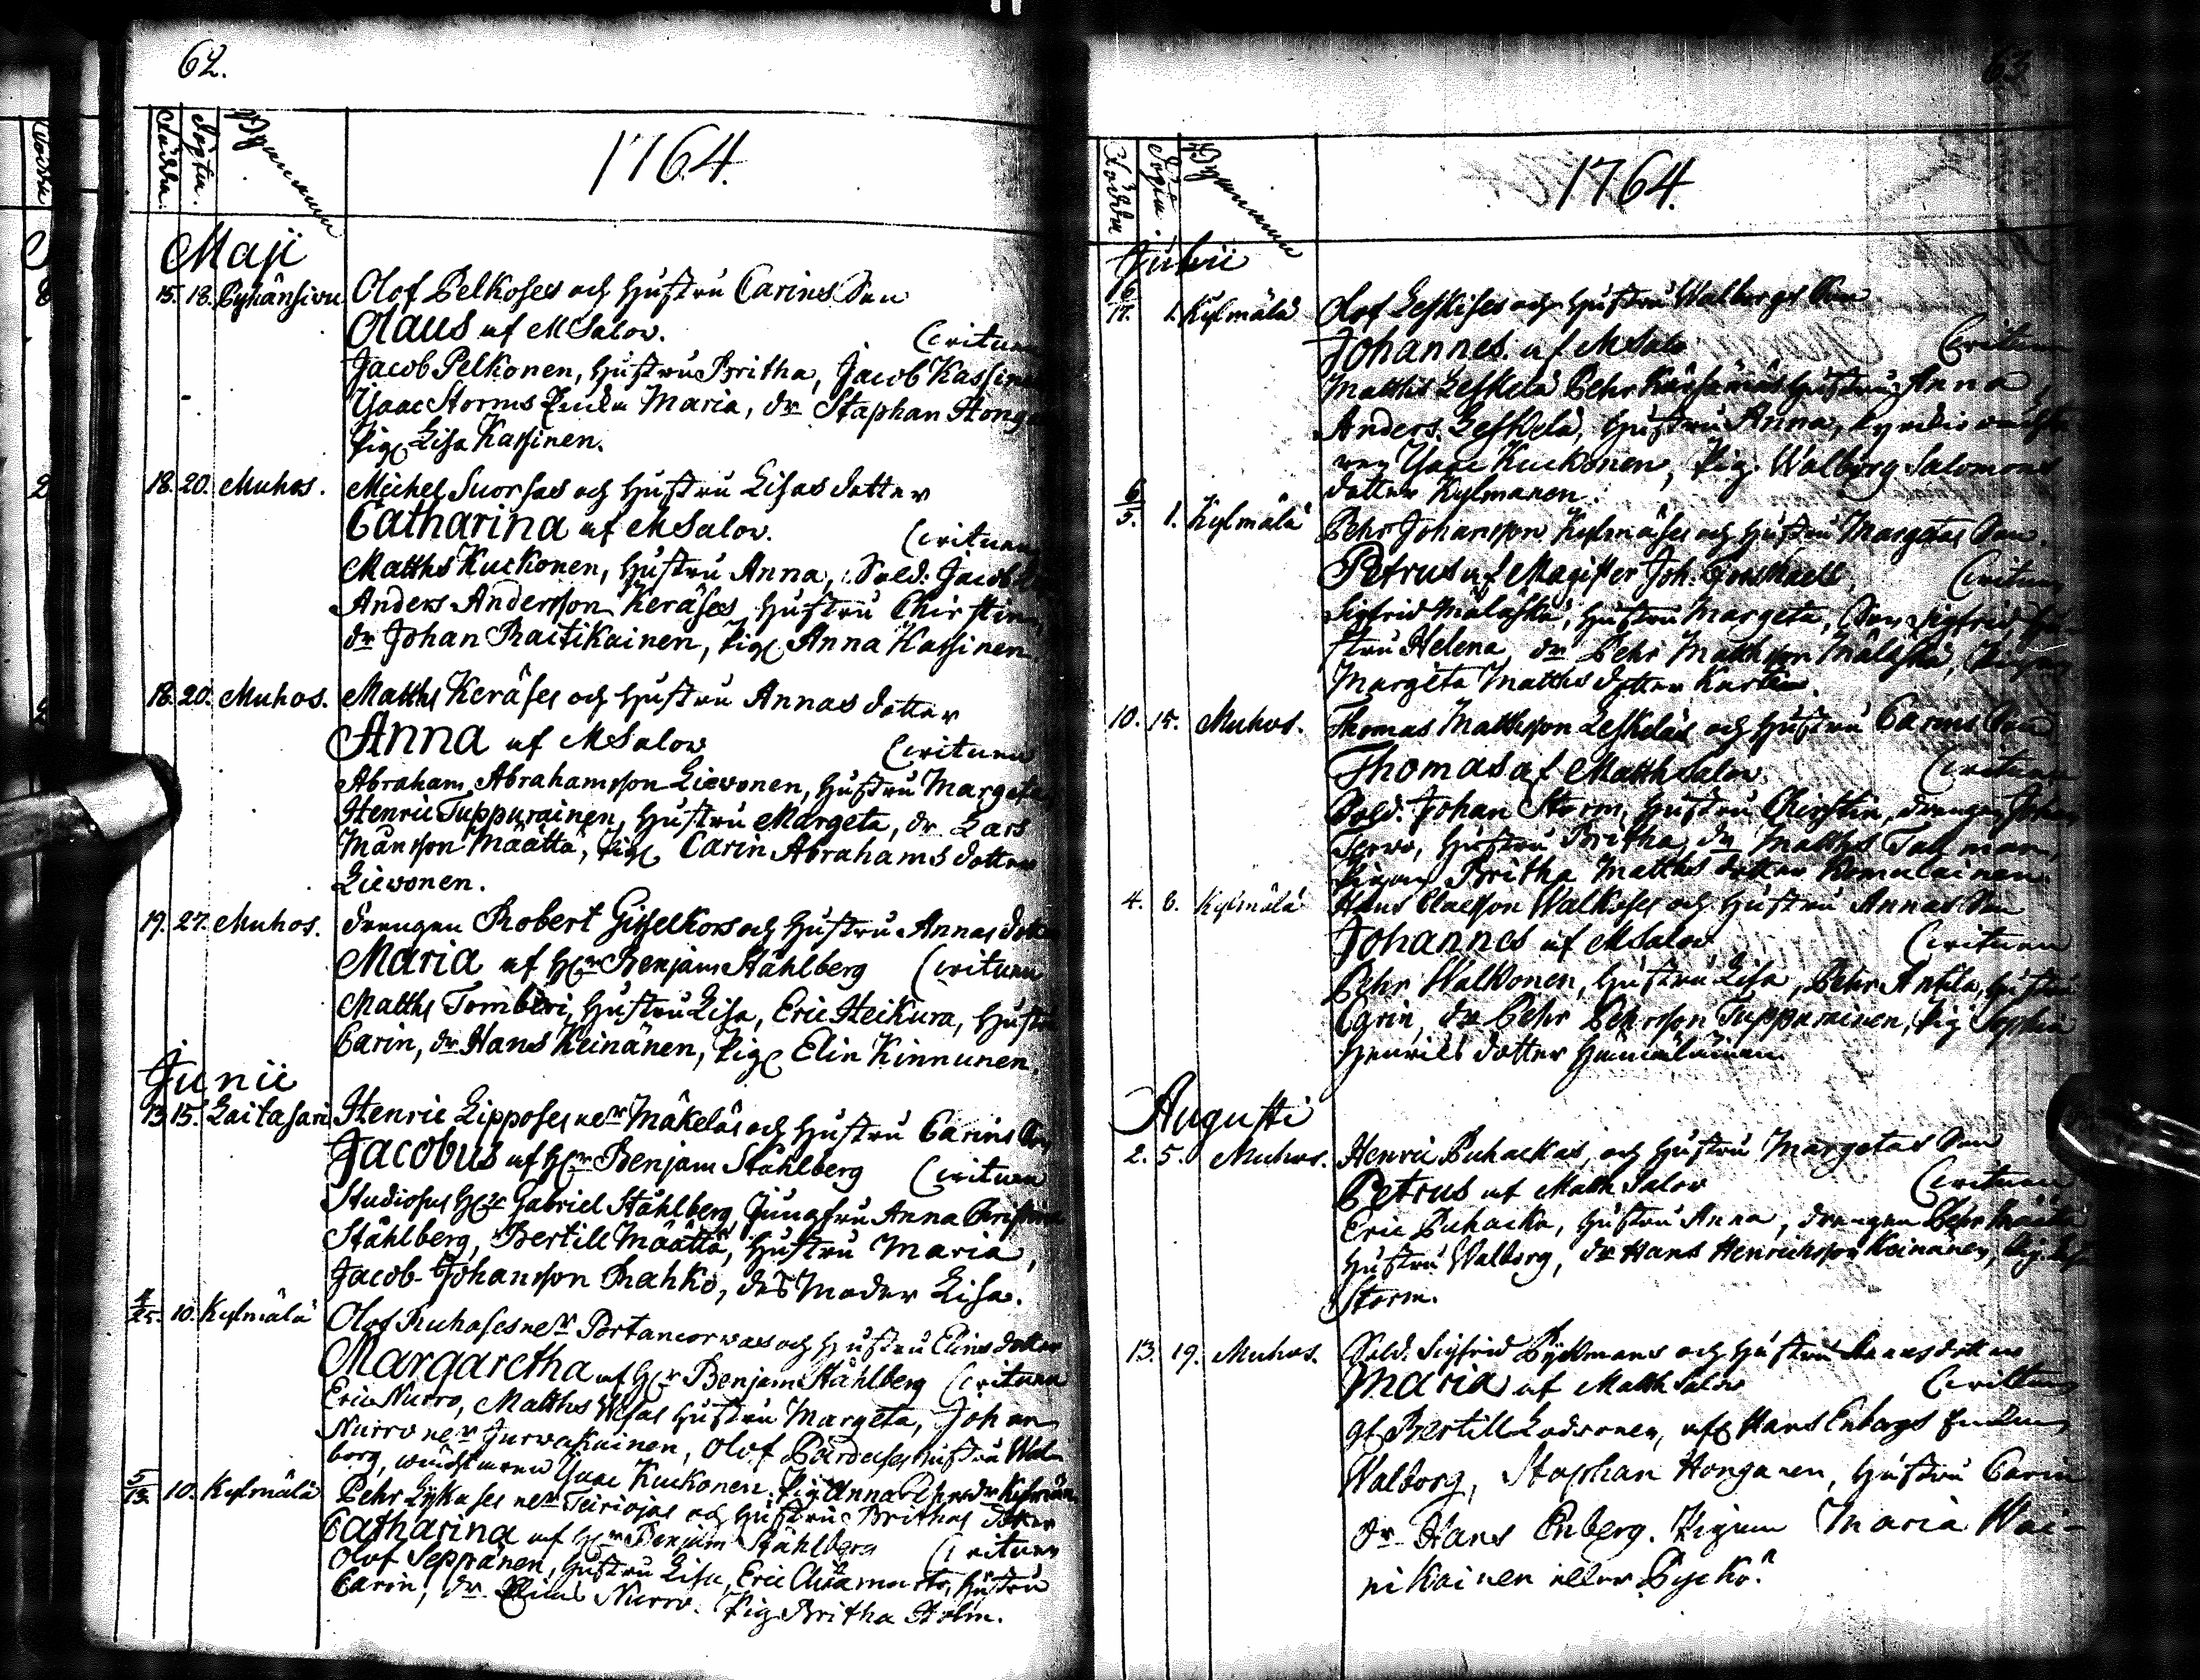 62.
Födda. Döpta. Bynamnen
1764.
Maji
15. 18. Pyhänsivu Olof Pelkoses och hustru Carins Son
Olaus af M Salov. Critum
Jacob Pelkonen, hustru Britha, Jacob Kassinen
Isaac Storms Enka Maria, dr Staphan Honga
pig Lisa Kassinen.
18. 20. Muhos. Michel Suorsas och hustru Lisas dotter
Catharina af M Salov. Crituna
Matths Kuckonen, hustru Anna, Sold: Jacob
Anders Andersson Keräses hustru Chirstin,
dr Johan Raitikainen, pig Anna Kassinen.
18. 20. Muhos. Matths Keräses och hustru Annas dotter
Anna af M Salov Crituna
Abraham Abrahamsson Liewonen, hustru Margeta
Henric Tuppurainen, hustru Margeta, dr. Lars
Månsson Määttä, pig Carin Abrahams dotter
Liewonen.
19. 27. Muhos. drengen Robert Gisselkors och hustru Annas dotter
Maria af Hr Benjam Ståhlberg Crituna
Matths Tomberi, hustru Lisa, Eric Heikura, hustru
Carin, dr Hans Keinänen, pig Elin Kinnunen.
Junii
13 15. Laitasari Henric Lipposes ner Mäkeläs och hustru Carins Son
Jacobus af Hr Benjam Ståhlberg Crituna
Studiosus Hr Gabriel Ståhlberg, Jungfru Anna Christina
Ståhlberg, Bertill Määttä, hustru Maria,
Jacob Johansson Rahko, des Moder Lisa.
4/25. 10. Kylmälä Olof Ruhases ner Portancorwas och hustru Elins dotter
Margaretha af Hr Benjam Ståhlberg Crituna
Eric Nurro, Matths Wesas hustru Margeta, Johan
Nurro ner Jurwakainen, Olof Pardases hustru Wal-
borg, wäcktaren Isaac Kuckonen. Pig Anna Pehrsdr Kylmän
5/13. 10. Kylmälä Pehr Lykases ner Teiriojas och hustru Brithas dotter
Catharina af Hr Benjam Ståhlberg Crituna
Olof Seppänen, hustru Lisa, Eric Ahamarto, hustru
Carin, dr. Elias Nurro. Pig Britha Holm.
63
Födda Döpta. Bynamnen
1764.
Julii
6/17. 1. Kylmälä Olof Leskises och hustru Walborgs Son
Johannes. af M Salov Critum
Matths Leskelä Pehr hustru Anna,
Anders Leskelä, hustru Anna,
ren Isaac Kuckonen, Pig. Walborg Salomons
dotter Kylmänen.
6/5. 1. Kylmälä Pehr Johansson Kylmäses och hustru Margetas Son.
Petrus af Magister Joh. Critum
Sigfrid Mälaskä, hustru Margeta, Son Sigfrid hu-
stru Helena, dr Pehr Matthsson Mälaskä, Pigan
Margeta Matths dotter
10. 15. Muhos. Thomas Matthsson Leskeläs och hustru Carins Son
Thomas af Matth Salov Crituna
Sold. Johan Storm, hustru Chirstin, drengen Johan
hustru Britha, dr Matths Tallman,
Pigan Britha Matths dotter Komulainen.
4. 6. Kylmälä Hans Claesson Walkoses och hustru Annas Son
Johannes af M Salov Crituna
Pehr Walkonen, hustru Lisa, Pehr Anttila, hustru
Carin, dr Pehr Pehrsson Tuppurainen, Pig Sophia
Henrics dotter Hämäläinen.
Augusti
2. 5. Muhos. Henric Puhackas, och hustru Margetas Son
Petrus af Matth Salov Crituna
Eric Puhacka, hustru Anna, drengen Pehr Määttä
hustru Walborg, dr Hans Henrichsson Keinänen, Pig. Lisa
Storm.
13. 19. Muhos. Sold. Sigfrid Byckmans och hustru Annas dotter
Maria af Matth Salov Crittuna
gf. Bertill Lodwonen, afl Hans Enbergs Enka
Walborg, Staphan Honganen, hustru Carin
dr. Hans Enberg. Pigan Maria Wai-
nikainen eller Pyckö.